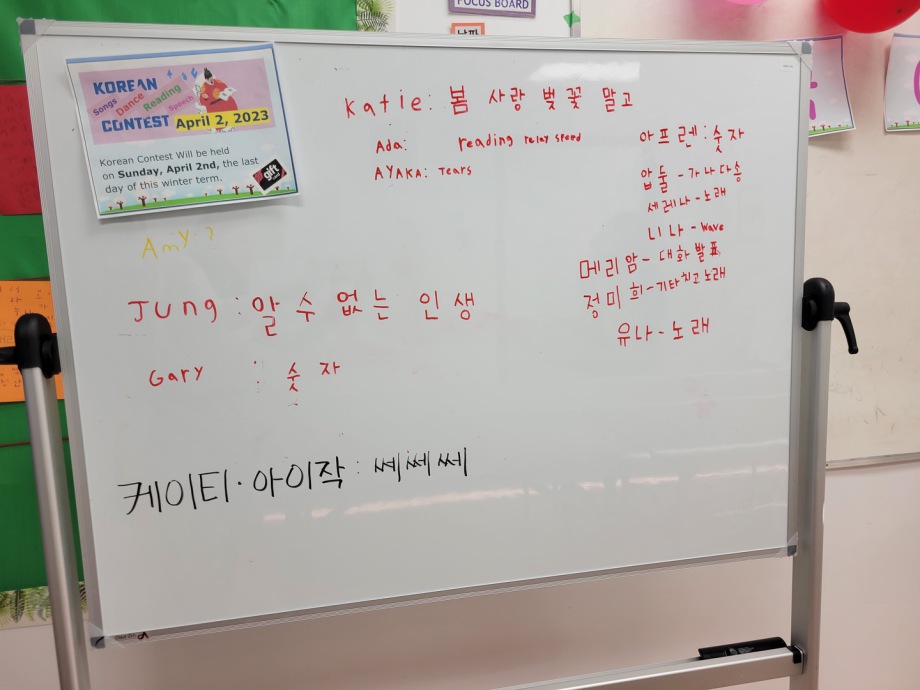 FOCUS BOARD
날짜
KOREAN
Songs Dance Reading Speech
CONTEST April 2, 2023
Korean Contest Will be held
on Sunday, April 2nd, the last
day of this winter term.
gift
Katie: 봄 사랑 벚꽃 말고
Ada: reading relay speed
AYAKA: Tears
아프렌:숫자
압둘 - 가나다송
세레나 - 노래
니나 - Wave
메리암 - 대화 발표
정미희 - 기타 치고 노래
유나 - 노래
AmY ?
Jung : 알 수 없는 인생
Gary : 숫자
케이티 · 아이작 : 쎄쎄쎄